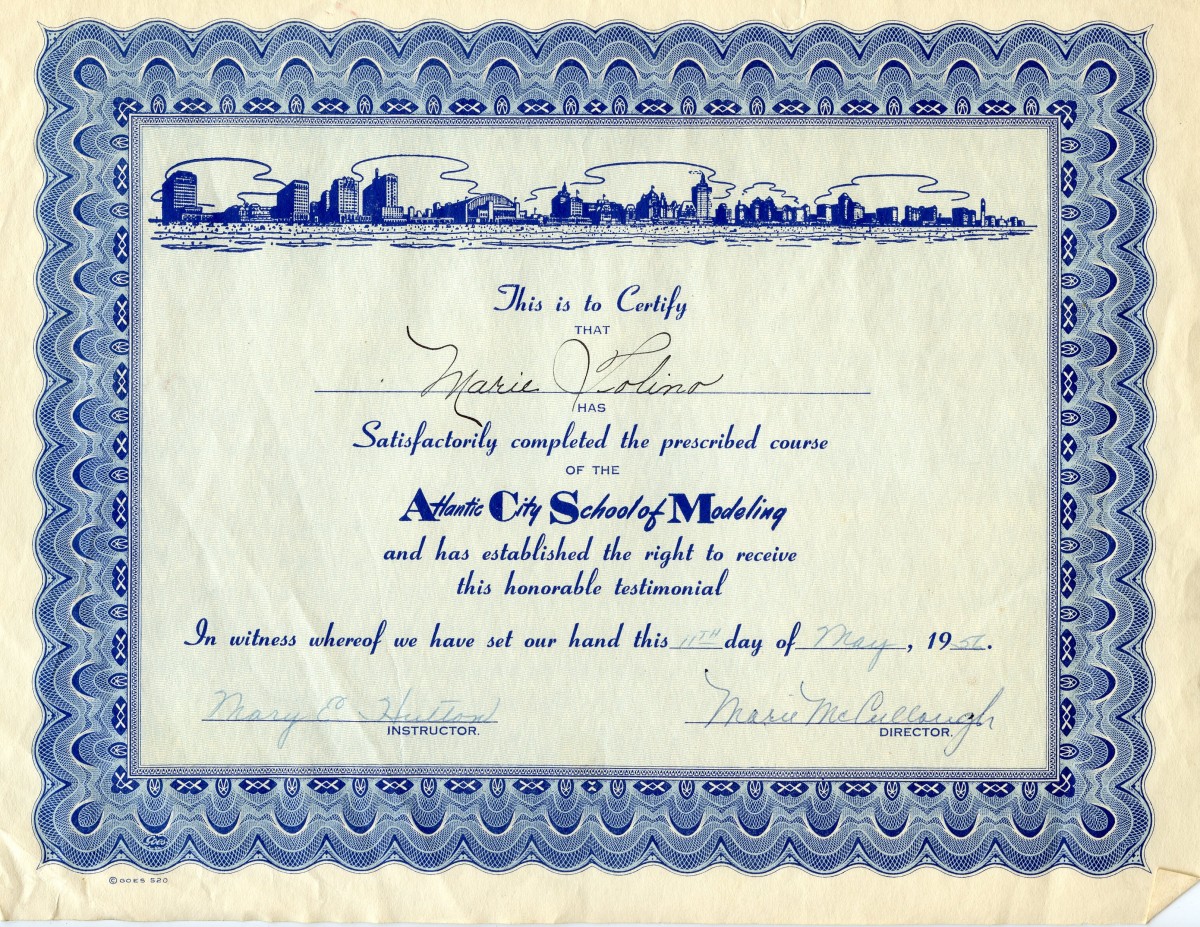 This is to Certify
THAT
Marie Tolino
HAS
Satisfactorily completed the prescribed course
OF THE
Atlantic City School of Modeling
and has established the right to receive
this honorable testimonial
In witness whereof we have set our hand this 11TH day of May, 1956.
Mary E Hutton Marie McCullough
INSTRUCTOR. DIRECTOR.
Goes
© GOES 520